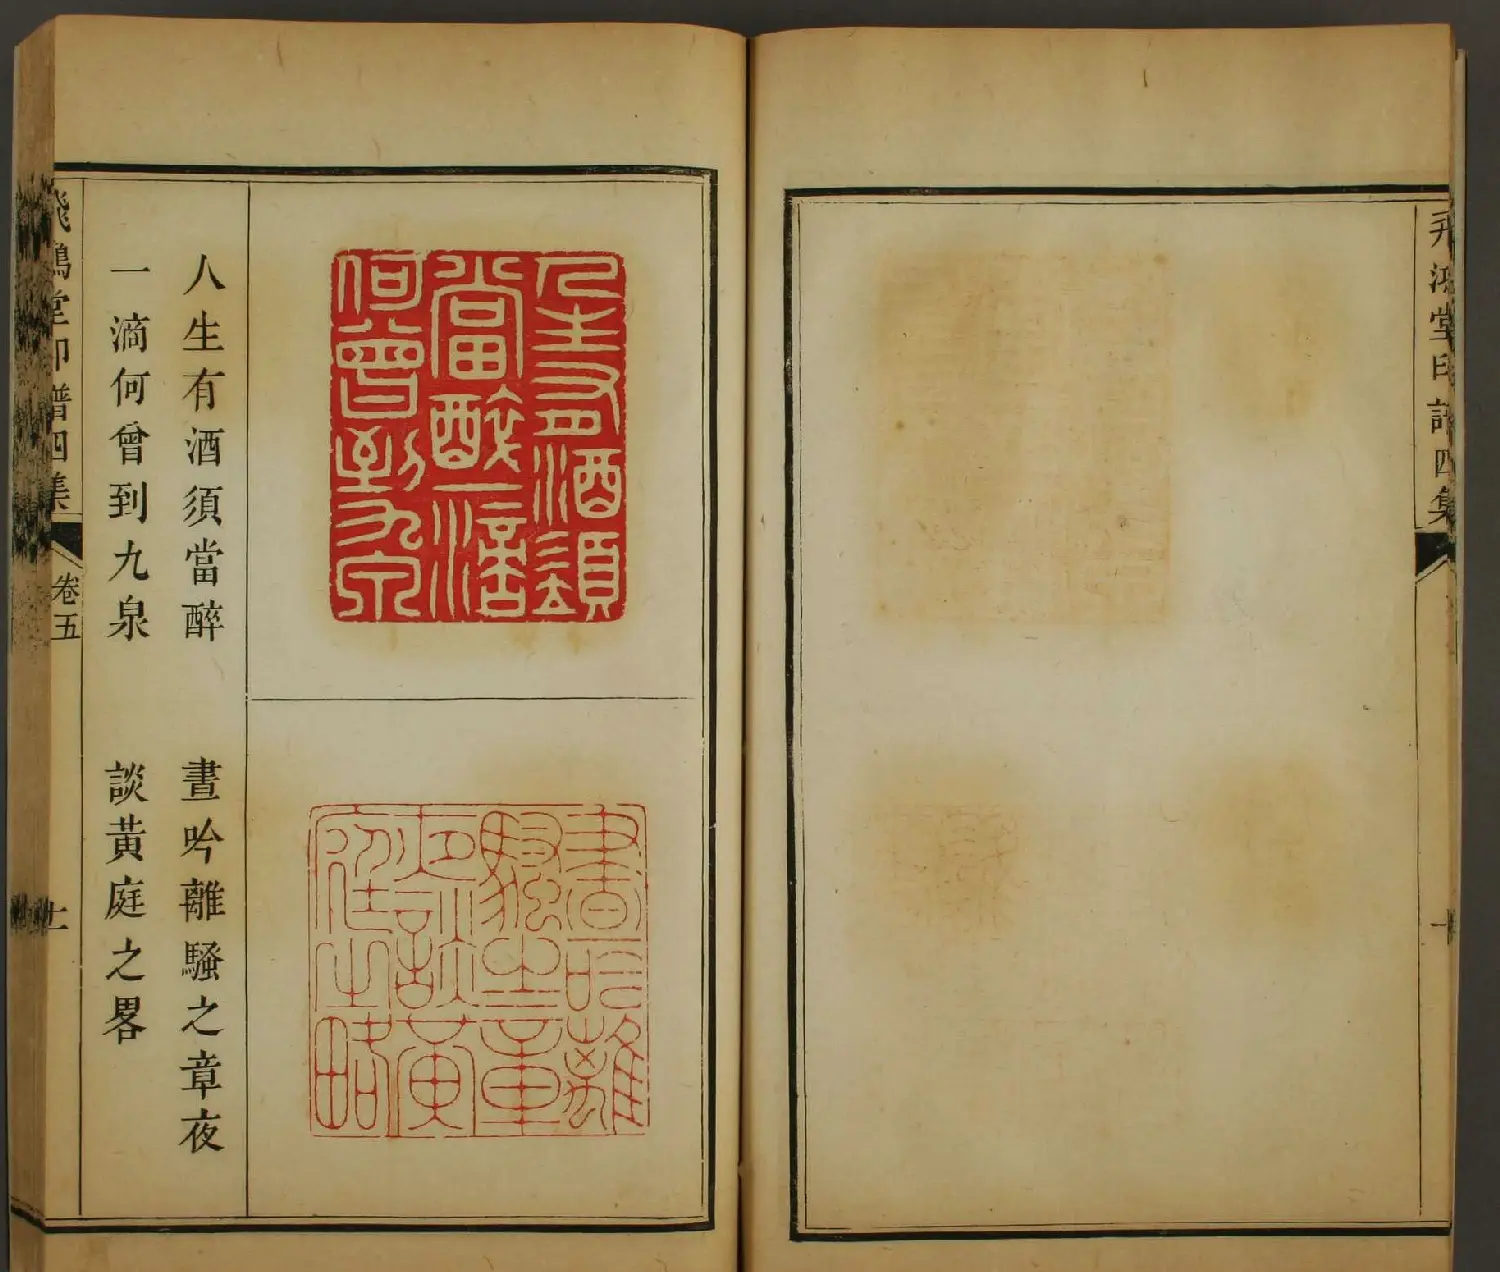 飛鴻堂印譜四集
人生有酒須當醉
一滴何曾到九泉
人生有酒須
當醉一滴
何曾到九泉
晝吟離騷之章夜
談黃庭之畧
晝吟離
騷之章
夜談黃
庭之略
飛鴻堂印譜四集
卷五
十一